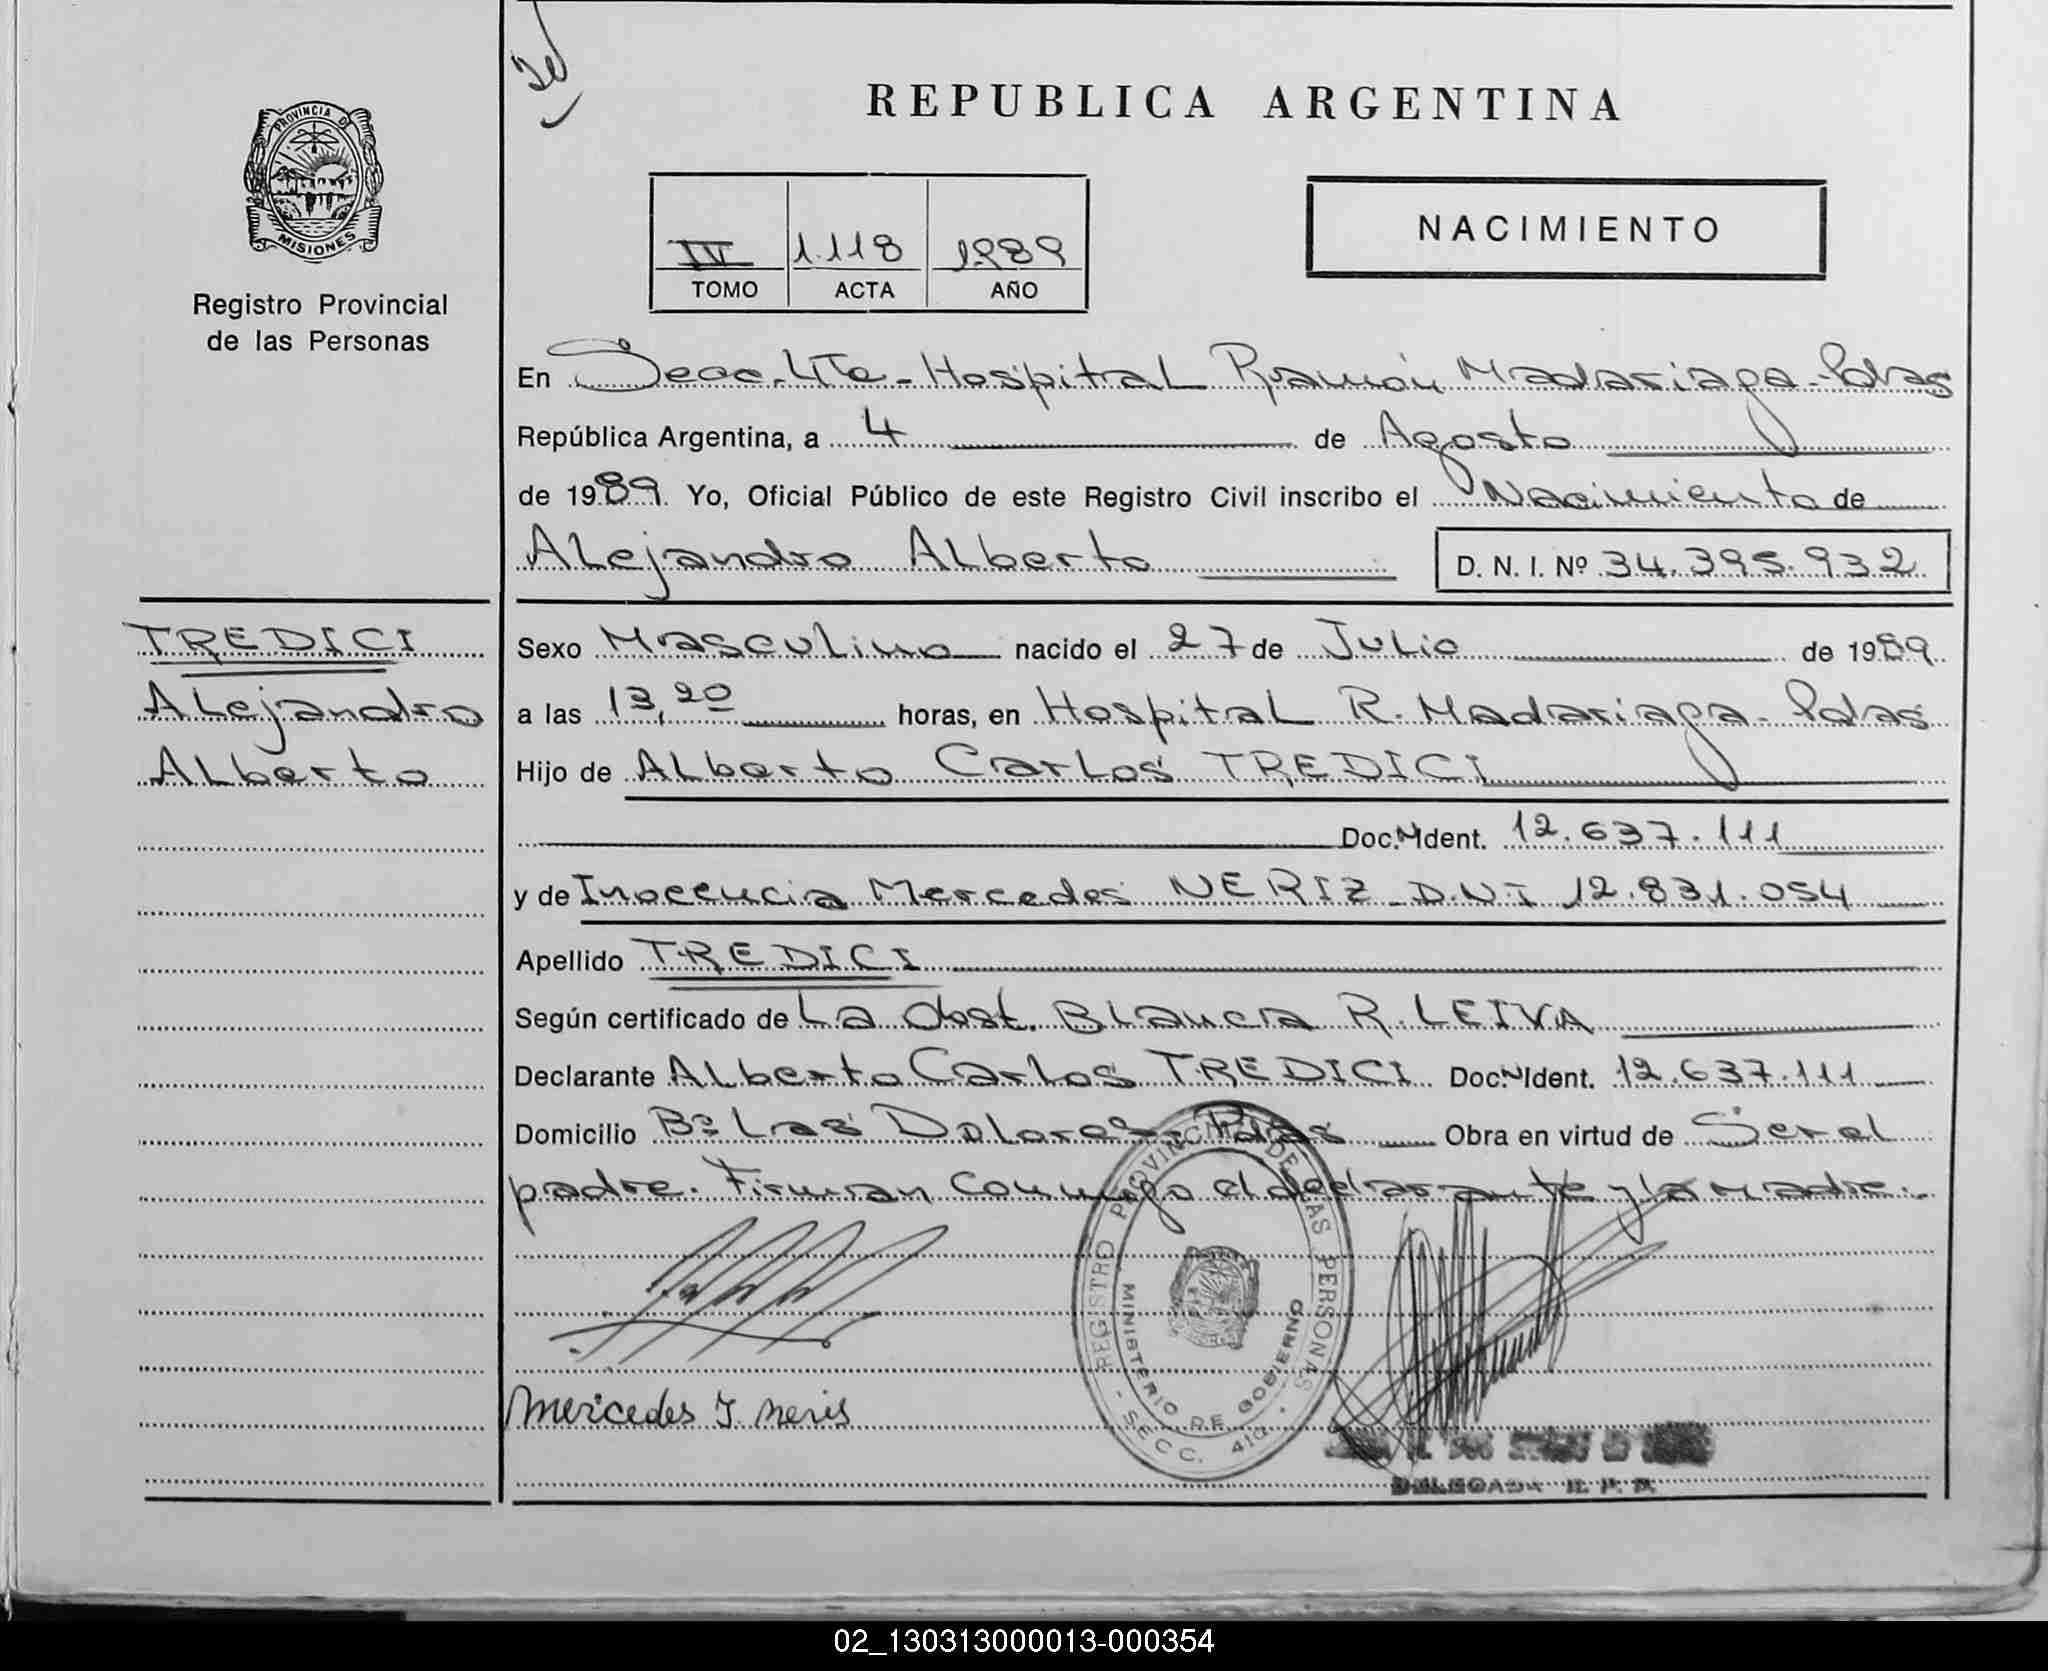 REPUBLICA ARGENTINA
PROVINCIA DE
MISIONES
Registro Provincial
de las Personas
IV 1.118 1989
TOMO ACTA AÑO
NACIMIENTO
En Secc. 4Ta - Hospital Ramón Madariaga - Pdas
República Argentina, a 4 de Agosto
de 1989. Yo, Oficial Público de este Registro Civil inscribo el Nacimiento de
Alejandro Alberto D. N. I. Nº 34.395.932
TREDICI
Alejandro
Alberto
Sexo Masculino nacido el 27 de Julio de 1989.
a las 13,20 horas, en Hospital R. Madariaga - Pdas
Hijo de Alberto Carlos TREDICI
Doc. Ident. 12.637.111
y de Inocencia Mercedes NERIZ - D.N.I 12.831.054
Apellido TREDICI
Según certificado de La Obst. Blanca R. LEIVA
Declarante Alberto Carlos TREDICI Doc. Ident. 12.637.111
Domicilio Bº Las Dolores - Pdas Obra en virtud de Ser el
padre. Firman conmigo el declarante y la madre.
REGISTRO PROVINCIAL DE LAS PERSONAS
MINISTERIO DE GOBIERNO
SECC. 4ta
Mercedes I. Neris
DELEGADA R. P. P.
02_130313000013-000354